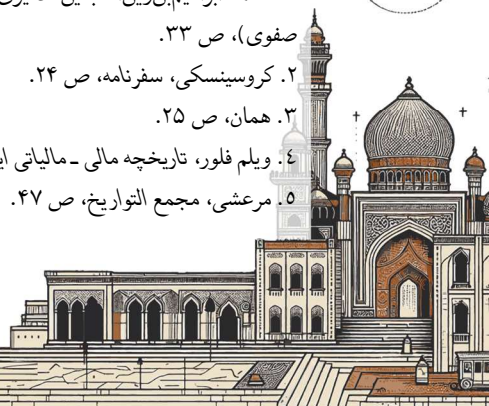 صفوی)، ص ۳۳.
۲. کروسینسکی، سفرنامه، ص ۲۴.
۳. همان، ص ۲۵.
٤. ویلم فلور، تاریخچه مالی ـ مالیاتی
٥. مرعشی، مجمع التواریخ، ص ۴۷.